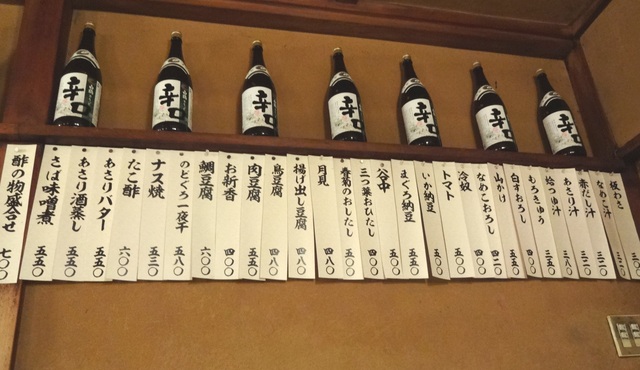 辛口
辛口
辛口
辛口
辛口
辛口
辛口
板わさ
なめこ汁 三二〇
赤だし汁 三二〇
あさり汁 三八〇
蛤つゆ
もろきゅう 四〇〇
白すおろし 五五〇
山かけ 四二〇
なめこおろし 四〇〇
冷奴
トマト 五五〇
いか納豆 五五〇
まぐろ納豆 五五〇
谷中 五〇〇
三つ葉おひたし 五五〇
春菊のおしたし 五五〇
月見 四八〇
揚げ出し豆腐 四八〇
鳥豆腐 四八〇
肉豆腐 五五〇
お新香 四〇〇
鯛豆腐 六〇〇
のどぐろ一夜干 五八〇
ナス焼 五三〇
たこ酢 六〇〇
あさりバター 五五〇
あさり酒蒸し 五五〇
さば味噌煮 五五〇
酢の物盛合せ 七八〇